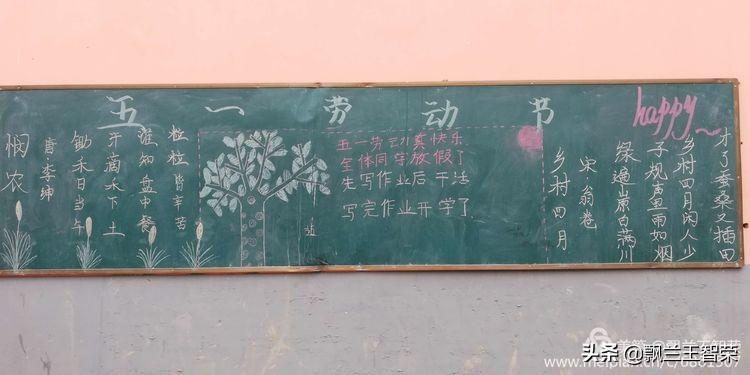 五一劳动节
happy
悯农
唐·李绅
锄禾日当午
汗滴禾下土
谁知盘中餐
粒粒皆辛苦
五一劳动真快乐
全体同学放假了
先写作业后干活
写完作业开学了
乡村四月
宋 翁卷
绿遍山原白满川
子规声里雨如烟
乡村四月闲人少
才了蚕桑又插田
头条 @飘兰王智荣